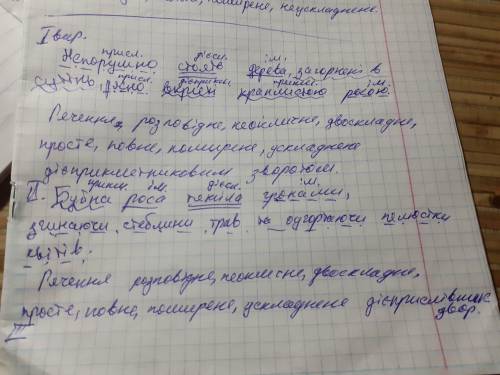 поширене, неускладнене.
I вар.
присл. дієсл. ім.
Непорушно стоять дерева, загорнені в
присл. дієприкм. прикм. ім.
сутінь, рясно вкриті краплистою росою.
Речення, розповідне, неокличне, двоскладне,
просте, повне, поширене, ускладнене
дієприкметниковим зворотом.
прикм. ім. дієсл. ім.
II. Буйна роса текла гроками,
згинаючи стеблини трав та обгортаючи пелюстки
квітів.
Речення розповідне, неокличне, двоскладне,
просте, повне, поширене, ускладнене дієприслівник
звор.